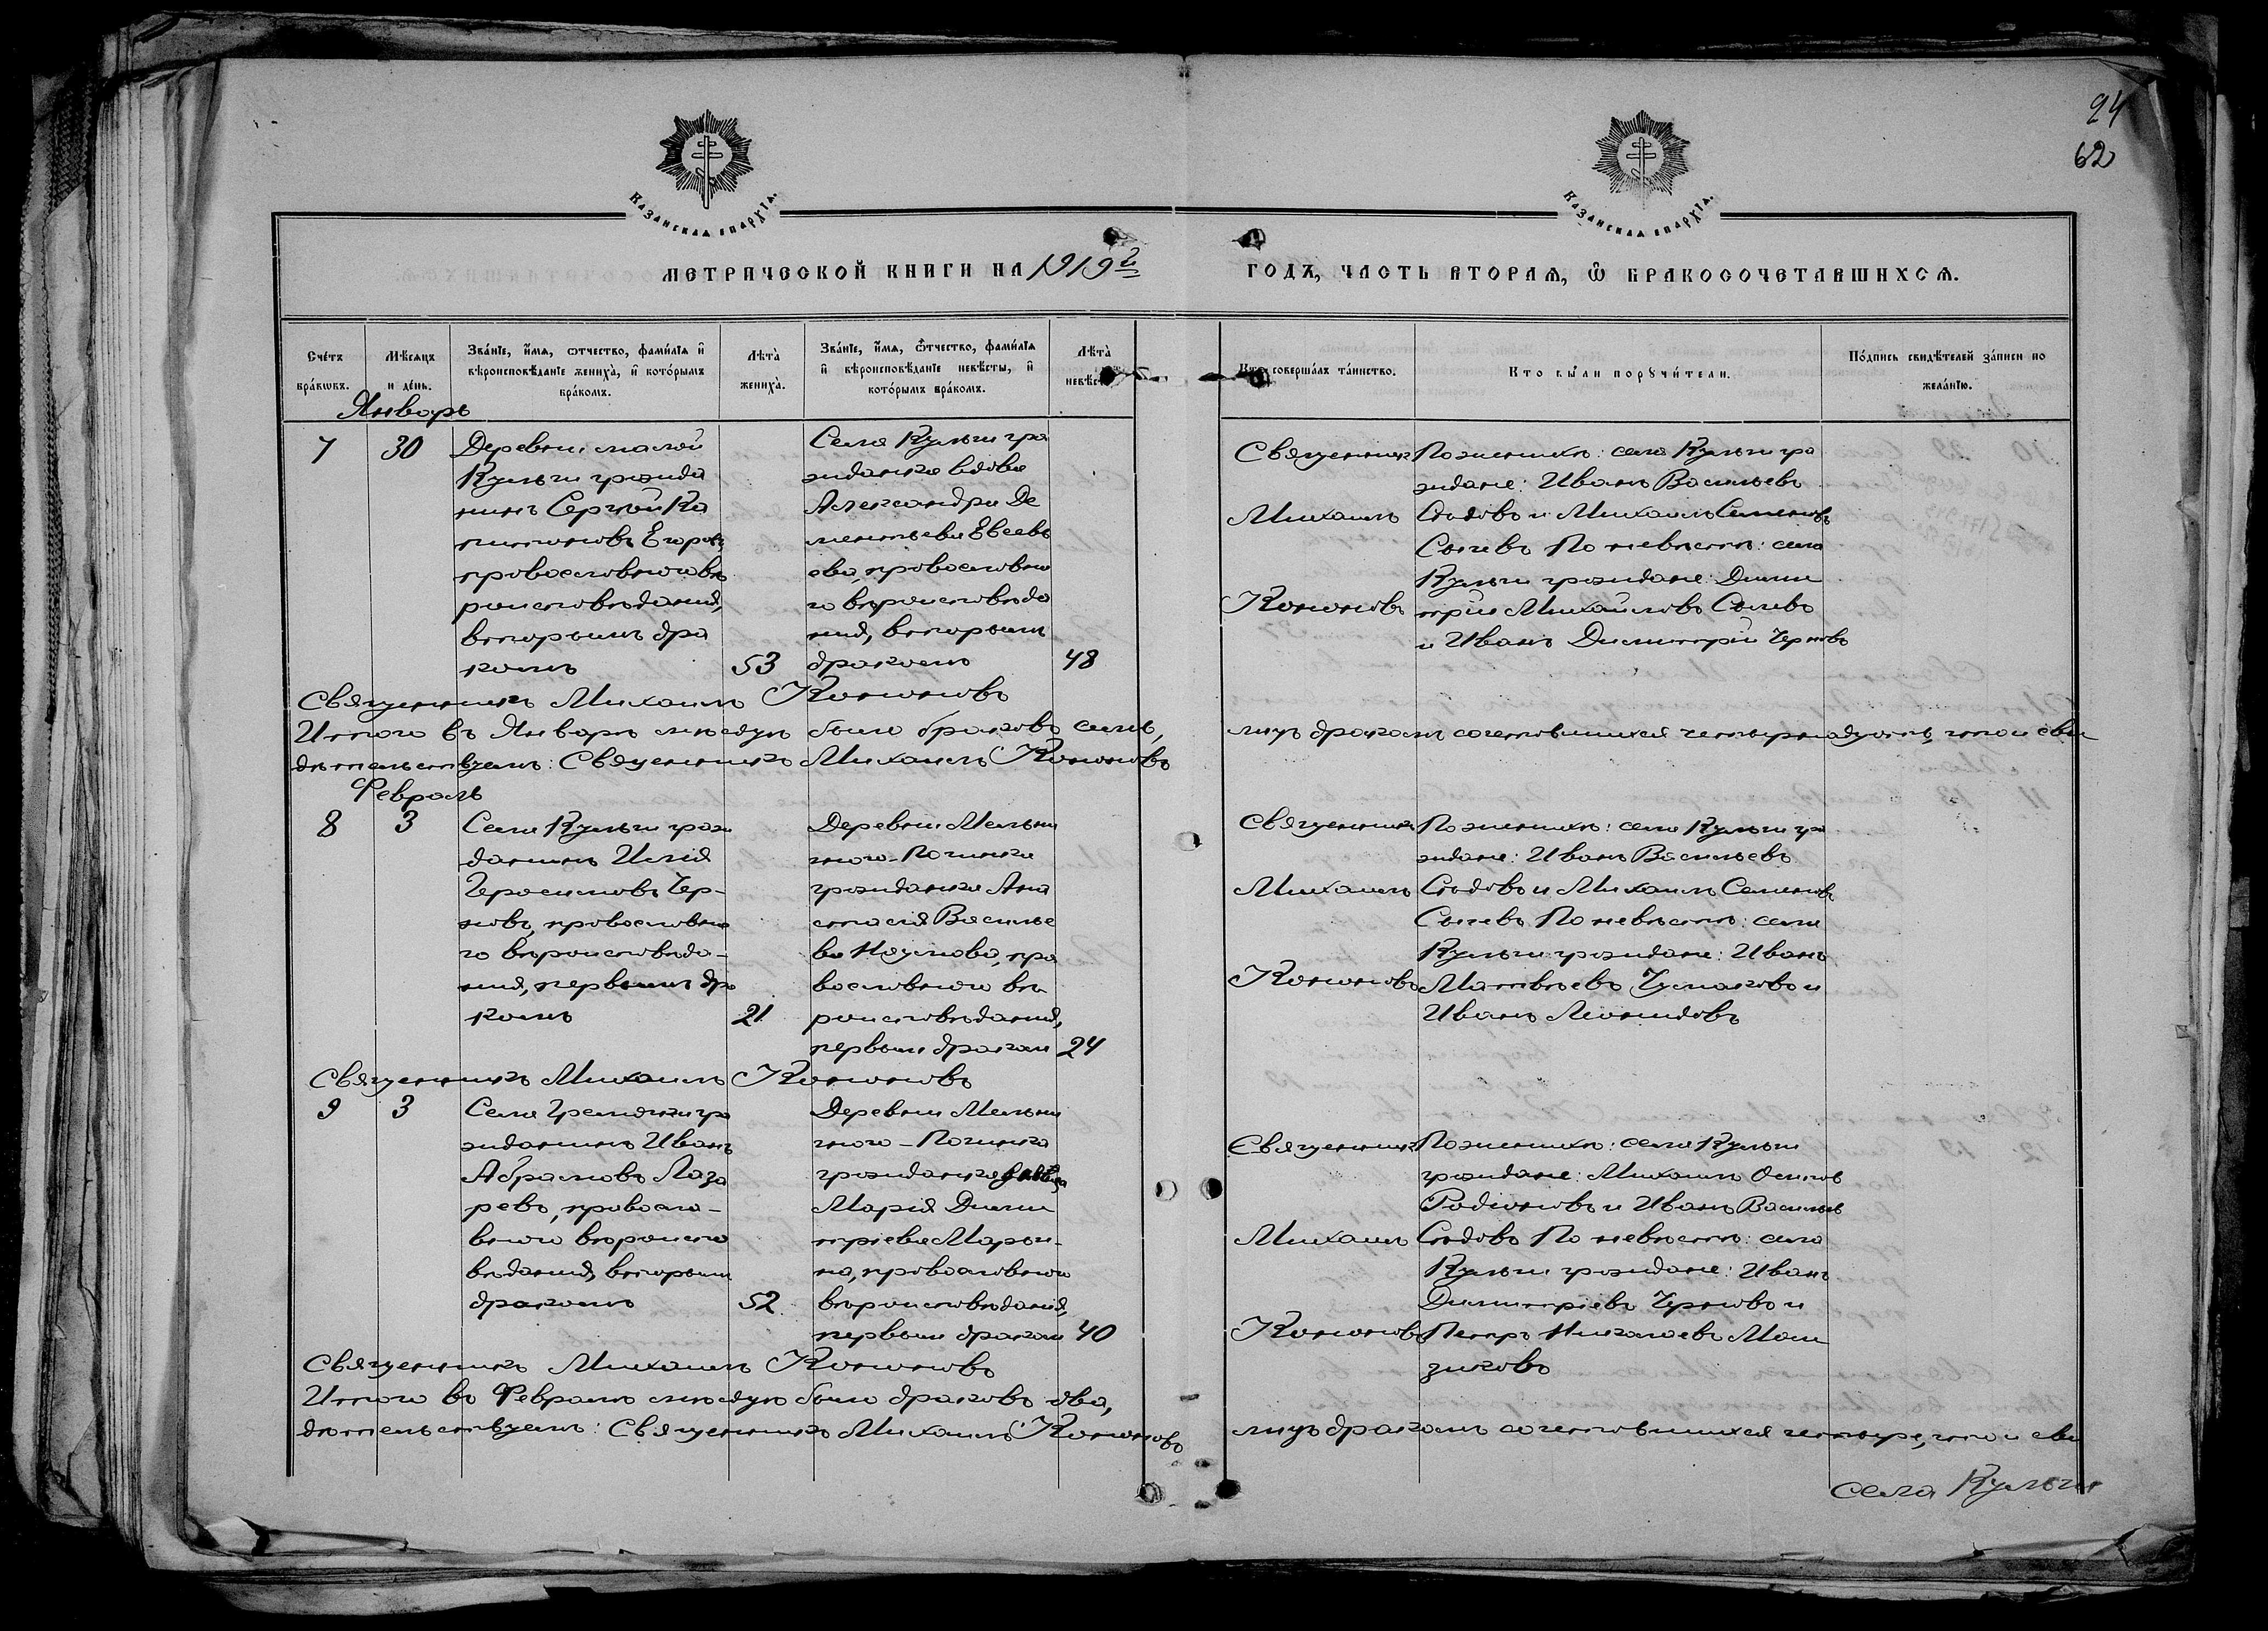 24
62
Казанская епархїа.
Казанская епархїа.
Метрической книги на 1919й
годъ, часть вторая, ѿ бракосочетавшихся.
Счетъ браковъ.
Мѣсяцъ и день.
Званїе, имя, отчество, фамилїя и вѣроисповѣданїе жениха, и которымъ бракомъ.
Лѣта жениха.
Званїе, имя, отчество, фамилїя и вѣроисповѣданїе невѣсты, и которымъ бракомъ.
Лѣта невѣсты
Кто совершалъ таинство.
Кто были поручители.
Подпись свидѣтелей записи по желанїю.
Январь
7
30
Деревни малой
Кульги гражда
нинъ Сергѣй Ка
питоновъ Егоровъ,
православного вѣ
роисповѣданія,
вторымъ бра
комъ
53
Села Кульги гра
жданка вдова
Александра Де
ментьева Евсевь
ева, православно
го вѣроисповѣда
нія, вторымъ
бракомъ
48
Священникъ
Михаилъ
Кононовъ
По женихѣ: села Кульги гра
ждане: Иванъ Васильевъ
Сѣдовъ и Михаилъ Семеновъ
Сычевъ По невѣстѣ: села
Кульги граждане: Дими
трій Михайловъ Сычевъ
и Иванъ Димитрій Черновъ
Священникъ Михаилъ Кононовъ
Итого въ Январѣ мѣсяцѣ было браковъ семь,
лицъ бракомъ сочетавшихся четырнадцать, что и сви
дѣтельствуемъ: Священникъ Михаилъ Кононовъ
Февраль
8
3
Села Кульги граж
данинъ Илія
Герасимовъ Чер-
новъ, православно
го вѣроисповѣда-
нія, первымъ бра
комъ
21
Деревни Мельни
чного-Починка
гражданка Ана
стасія Василье
ва Наумова, пра
вославного вѣ
роисповѣданія,
первымъ бракомъ
24
Священникъ
Михаилъ
Кононовъ
По женихѣ: села Кульги гра
ждане: Иванъ Васильевъ
Сѣдовъ и Михаилъ Семеновъ
Сычевъ По невѣстѣ: села
Кульги граждане: Иванъ
Матвѣевъ Чумаковъ и
Иванъ Леонидовъ
Священникъ Михаилъ Кононовъ
9
3
Села Гремячки гра
жданинъ Иванъ
Абрамовъ Лаза
ревъ, правосла-
вного вѣроиспо
вѣданія, вторымъ
бракомъ
52
Деревни Мельни
чного-Починка
гражданка дѣвица
Марія Дими
тріева Марьи-
на, православного
вѣроисповѣданія,
первымъ бракомъ
40
Священникъ
Михаилъ
Кононовъ
По женихѣ: села Кульги
граждане: Михаилъ Осиповъ
Родіоновъ и Иванъ Васильевъ
Сѣдовъ По невѣстѣ: села
Кульги граждане: Иванъ
Димитріевъ Черновъ и
Петръ Николаевъ Мал
зиковъ
Священникъ Михаилъ Кононовъ
Итого въ Февралѣ мѣсяцѣ было браковъ два,
лицъ бракомъ сочетавшихся четыре, что и сви
дѣтельствуемъ: Священникъ Михаилъ Кононовъ
села Кульги